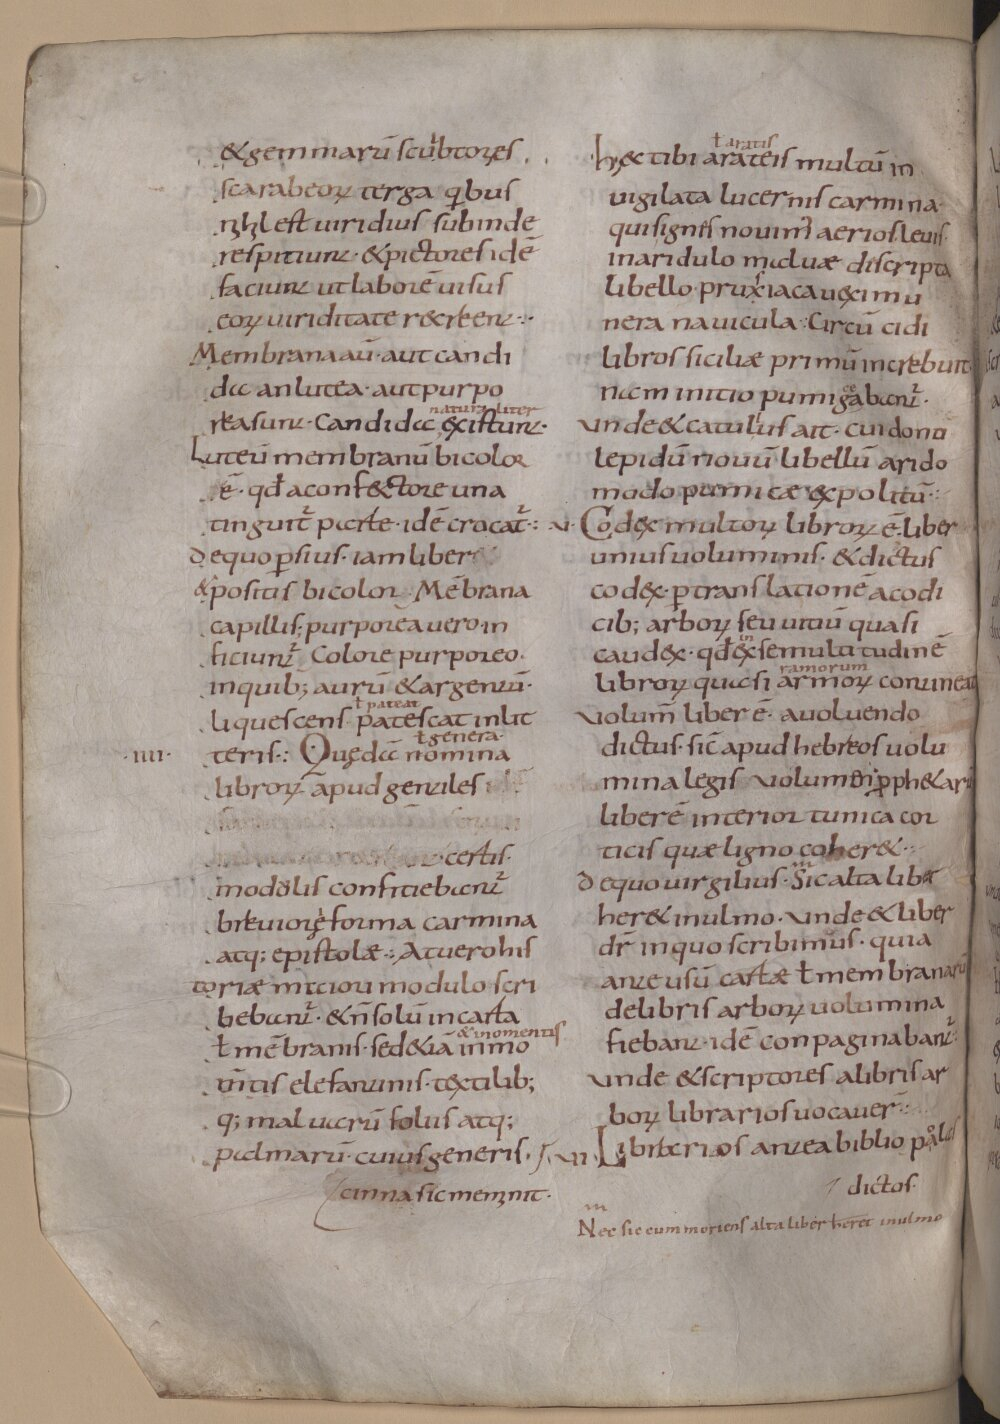 &gemmarū sculbtores
scarabeoꝝ terga qibus
nihil est uiridius subinde
respitiunt · &pictores idē
faciunt ut laborē uisus
eoꝝ uiriditate recreent :·
Membrana aū · aut candi
da an lutea · aut purpo
rea sunt · Candida existunt ·
naturaliter
Luteū membranū bicolor
ē · qđ a confectore una
tinguit parte · idē crocat :·
de quo persius · iam liber
&positis bicolor · Mēbrana
capillis; purporea uero in
ficiunt Colore purporeo ·
inquib; aurū &argentū ·
liquescens patescat in lit
ł pateat
·IIII· teris :· Quędā nomina
ł genera
libroꝝ apud gentiles
certis ·
modolis confitiebant
breuiore forma carmina
atq; epistolæ :· At uero his
toriæ maiori modulo scri
bebant · & ñ solū in carta
ł mēbranis · sed &iā in mo
& in omentis
ntis elefantinis · textilib;
q; maluarū foliis atq;
palmarū · cuius generis ·
cinna sic meminit ·
hæc tibi arateis multū in
ł aratis
uigilata lucernis carmina
qui signis nouim aerios leuis ·
in aridulo maluæ discripta
libello prusiaca uexi mu
nera nauicula · Circū cidi
libros siciliæ primū increbuit
nam initio pumigabant ·
ce
unde & catullus ait · cui dono
lepidū nouū libellū arido
modo pumicæ expolitū :·
VI · Codex multoꝝ libroꝝ ē · liber
unius uoluminis · & dictus
codex · p translationē a codi
cib; arboꝝ seu uitiū quasi
caudex · qđ ex se multitudinē
in
libroꝝ quasi armoꝝ contineat
ramorum
uolum̄ liber ē · a uoluendo
dictus · sic̄ apud hebreos uolu
mina legis uolumen pphetarū
liber ē interior tunica cor
ticis quæ ligno coheret ·
de quo uirgilius · Sic alta liber
m
heret in ulmo · unde & liber
dr̄ in quo scribimus · quia
ante usū cartæ ł membranarū
de libris arboꝝ uolumina
fiebant · idē conpaginabant ·
unde & scriptores a libris ar
boꝝ librarios uocauer̄ :·
VII · Librarios antea bibliopalos
dictos ·
m
Nec sic cum moriens alta liber heret in ulmo